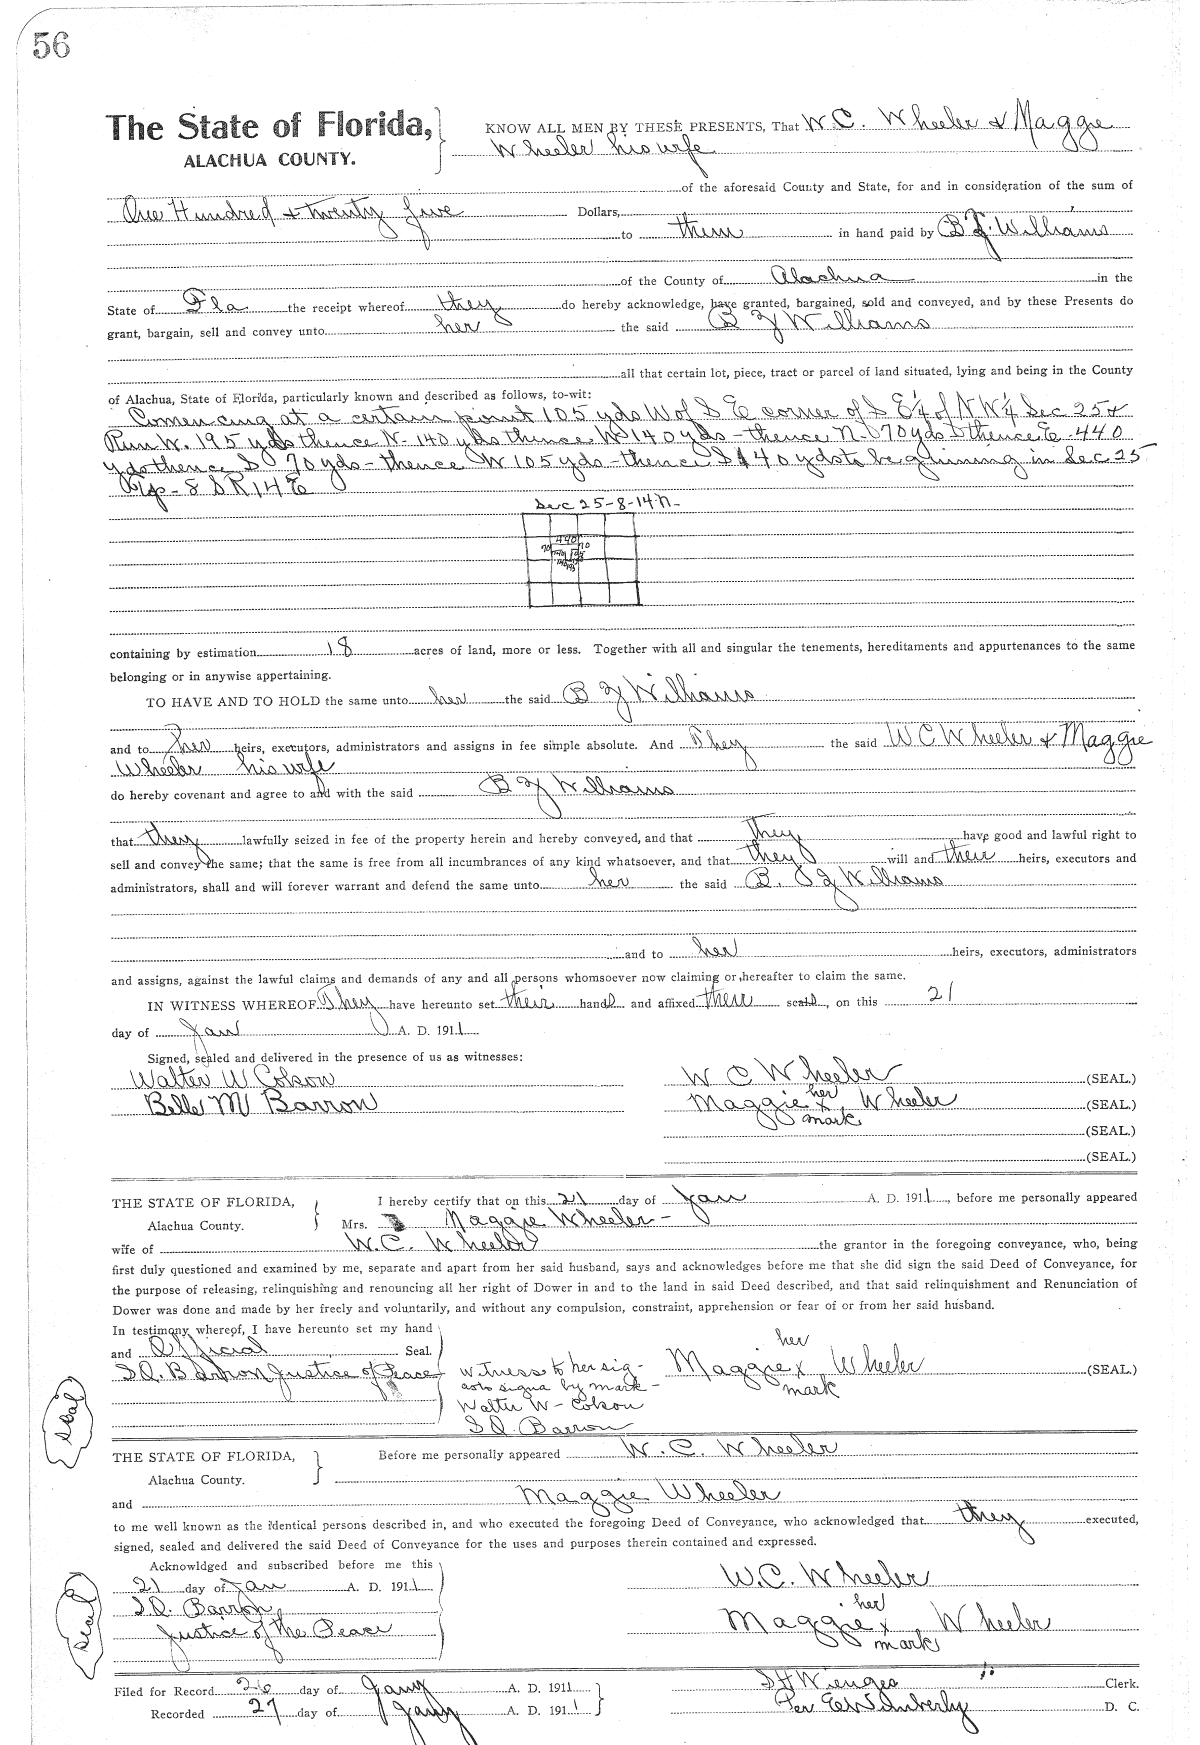 56
The State of Florida,
ALACHUA COUNTY.
KNOW ALL MEN BY THESE PRESENTS, That W.C. Wheeler & Maggie
Wheeler his wife
of the aforesaid County and State, for and in consideration of the sum of
One Hundred & twenty five Dollars,
to them in hand paid by B J. Williams
of the County of Alachua in the
State of Fla the receipt whereof they do hereby acknowledge, have granted, bargained, sold and conveyed, and by these Presents do
grant, bargain, sell and convey unto her the said B J Williams
all that certain lot, piece, tract or parcel of land situated, lying and being in the County
of Alachua, State of Florida, particularly known and described as follows, to-wit:
Comencing at a certain point 105 yds W of S E corner of S E¼ of N W¼ Sec 25 &
Run W. 195 yds thence N- 140 yds thence W 140 yds - thence N. 70 yds thence E-440
yds thence S 70 yds - thence W 105 yds - thence S 140 yds to beginning in Sec 25
Tp- 8 S R 14 E
Sec 25-8-14
440
70 70
containing by estimation 18 acres of land, more or less. Together with all and singular the tenements, hereditaments and appurtenances to the same
belonging or in anywise appertaining.
TO HAVE AND TO HOLD the same unto her the said B J Williams
and to her heirs, executors, administrators and assigns in fee simple absolute. And They the said W C Wheeler & Maggie
Wheeler his wife
do hereby covenant and agree to and with the said B J Williams
that they lawfully seized in fee of the property herein and hereby conveyed, and that They have good and lawful right to
sell and convey the same; that the same is free from all incumbrances of any kind whatsoever, and that they will and their heirs, executors and
administrators, shall and will forever warrant and defend the same unto her the said B. J Williams
and to her heirs, executors, administrators
and assigns, against the lawful claims and demands of any and all persons whomsoever now claiming or hereafter to claim the same.
IN WITNESS WHEREOF They have hereunto set their hands and affixed their seals, on this 21
day of Jan A. D. 1911
Signed, sealed and delivered in the presence of us as witnesses:
Walter W Colson
Belle M Barron
W C Wheeler (SEAL.)
her
Maggie x Wheeler (SEAL.)
mark
(SEAL.)
(SEAL.)
THE STATE OF FLORIDA,
Alachua County.
I hereby certify that on this 21 day of Jan A. D. 1911, before me personally appeared
Mrs. Maggie Wheeler -
wife of W.C. Wheeler the grantor in the foregoing conveyance, who, being
first duly questioned and examined by me, separate and apart from her said husband, says and acknowledges before me that she did sign the said Deed of Conveyance, for
the purpose of releasing, relinquishing and renouncing all her right of Dower in and to the land in said Deed described, and that said relinquishment and Renunciation of
Dower was done and made by her freely and voluntarily, and without any compulsion, constraint, apprehension or fear of or from her said husband.
In testimony whereof, I have hereunto set my hand
and Official Seal.
S.D. Barron Justice of Peace
seal
witness to her sig-
by mark -
Walter W- Colson
S D. Barron
her
Maggie x Wheeler (SEAL.)
mark
THE STATE OF FLORIDA,
Alachua County.
Before me personally appeared W. C. Wheeler
and Maggie Wheeler
to me well known as the identical persons described in, and who executed the foregoing Deed of Conveyance, who acknowledged that they executed,
signed, sealed and delivered the said Deed of Conveyance for the uses and purposes therein contained and expressed.
Acknowldged and subscribed before me this
21 day of Jan A. D. 1911
S.D. Barron
Justice of the Peace
seal
W.C. Wheeler
her
Maggie x Wheeler
mark
Filed for Record 26 day of Jany A. D. 1911
Recorded 27 day of Jany A. D. 1911
S H Wienges Clerk.
Per D. C.